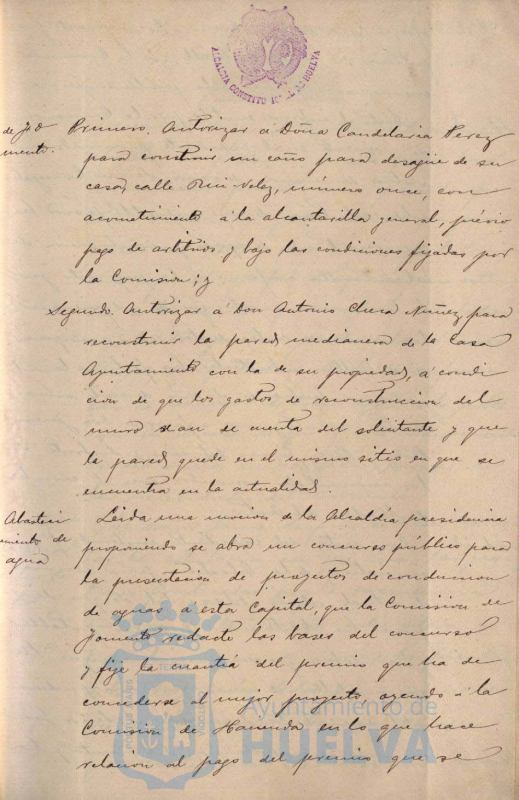 ALCALDIA CONSTITUCIONAL DE HUELVA
de Fo
mento.
Primero. Autorizar á Doña Candelaria Perez
para construir un caño para desagüe de su
casa, calle Rui-Velez, número once, con
acometimiento á la alcantarilla general, prévio
pago de arbitrios y bajo las condiciones fijadas por
la Comision; y
Segundo. Autorizar á Don Antonio Nuñez para
reconstruir la pared medianera de la Casa
Ayuntamiento con la de su propiedad, á condi
cion de que los gastos de reconstruccion del
muro sean de cuenta del solicitante y que
la pared quede en el mismo sitio en que se
encuentra en la actualidad.
Abasteci
miento de
agua
Leida una mocion de la Alcaldía presidencia
proponiendo se abra un concurso público para
la presentacion de proyectos de conduccion
de aguas á esta Capital, que la Comision de
Fomento redacte las bases del concurso
y fije la cuantía del premio que ha de
concederse al mejor proyecto oyendo á la
Comision de Hacienda en lo que hace
relacion al pago del premio que se
Ayuntamiento de
HUELVA